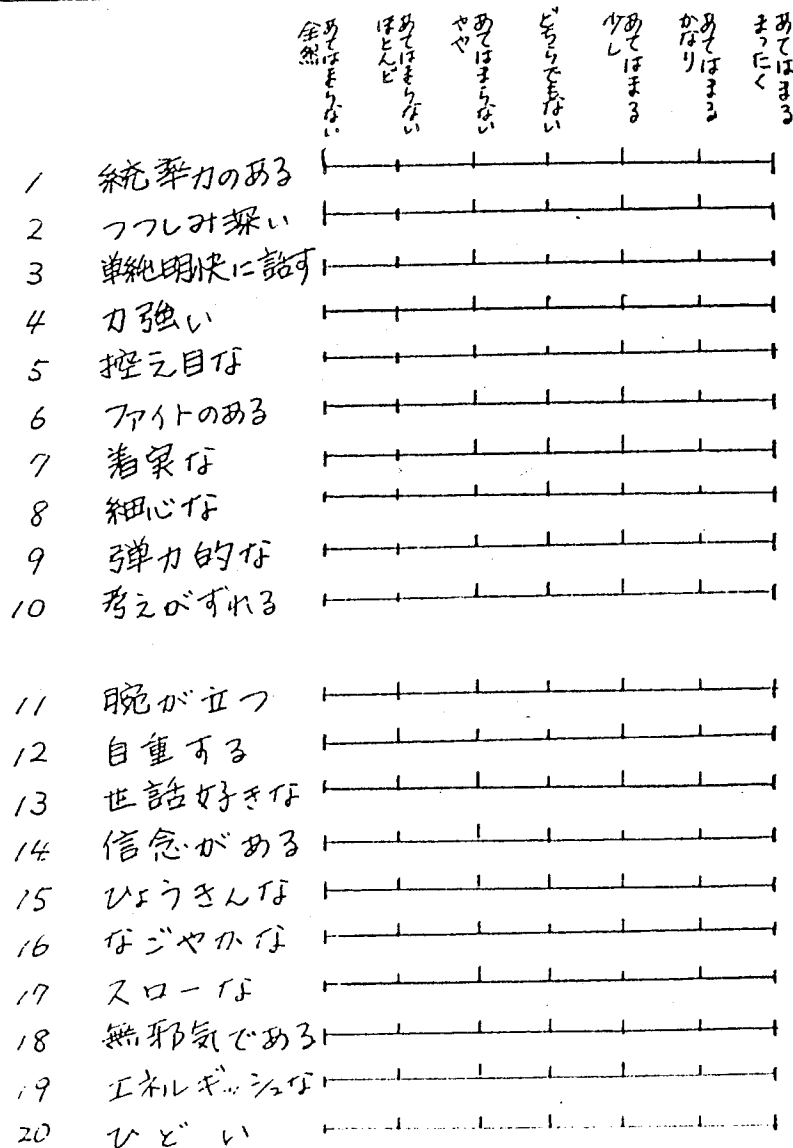 全然あてはまらない
ほとんどあてはまらない
ややあてはまらない
どちらでもない
少しあてはまる
かなりあてはまる
まったくあてはまる
1 統率力のある
2 つつしみ深い
3 単純明快に話す
4 力強い
5 控え目な
6 ファイトのある
7 着実な
8 細心な
9 弾力的な
10 考えがずれる
11 腕が立つ
12 自重する
13 世話好きな
14 信念がある
15 ひょうきんな
16 なごやかな
17 スローな
18 無邪気である
19 エネルギッシュな
20 ひどい